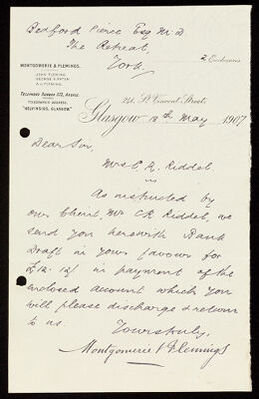 Bedford Pierce Esq M.D
The Retreat
York.
2 Enclosures
MONTGOMERIE & FLEMINGS.
TELEGRAPHIC ADDRESS,
"HELFINGIDS, GLASGOW."
221, St Vincent Street,
Glasgow 8th May 1907
Dear Sir,
Mrs C. R. Riddel
As instructed by
our Client, Mr C R Riddel, we
send you herewith Bank
Draft in your favour for
£12. 12/ in payment of the
enclosed account which you
will please discharge & return
to us.
Yours truly,
Montgomerie & Flemings